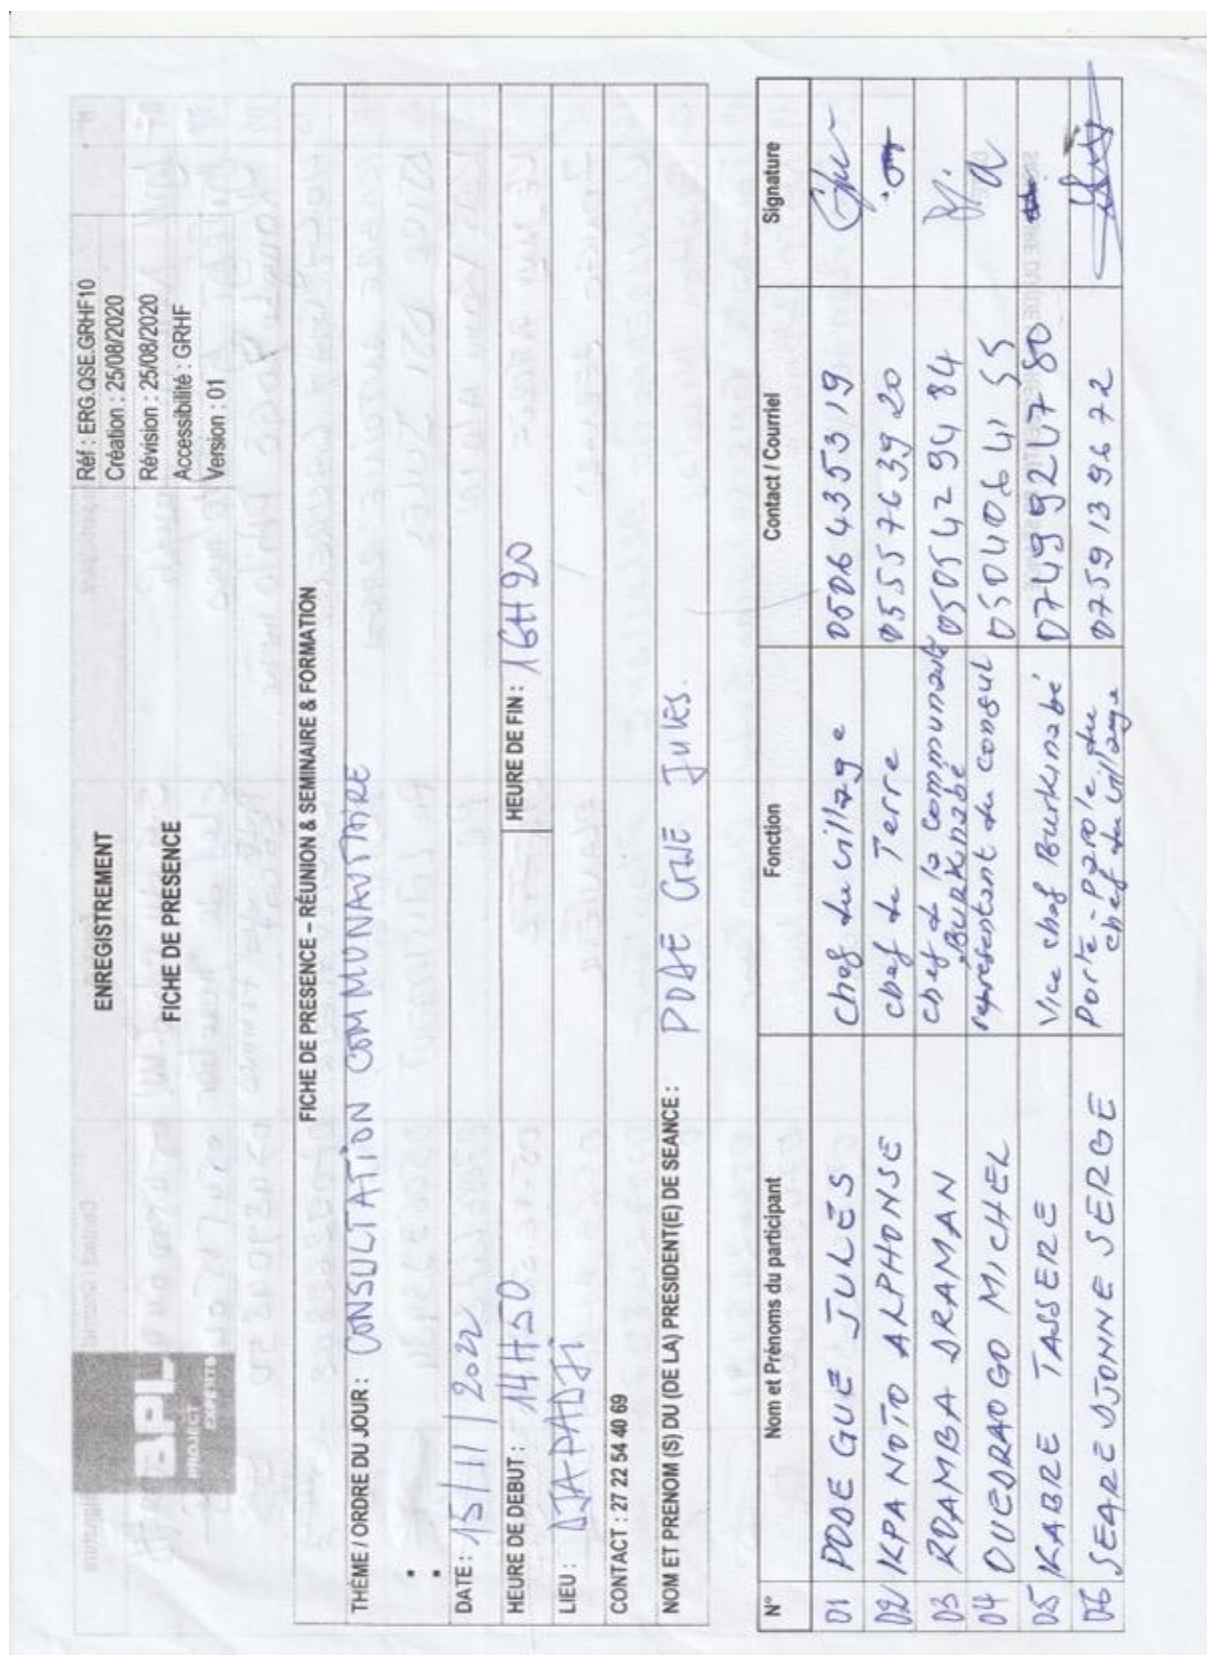 BPL
PROJECT
EXPERTS
ENREGISTREMENT
FICHE DE PRESENCE
Réf : ERG.QSE.GRHF10
Création : 25/08/2020
Révision : 25/08/2020
Accessibilité : GRHF
Version : 01
FICHE DE PRESENCE – RÉUNION & SEMINAIRE & FORMATION
THÈME / ORDRE DU JOUR : CONSULTATION COMMUNAUTAIRE
DATE : 15/11/2022
HEURE DE DEBUT : 14H50 HEURE DE FIN : 16H20
LIEU : DJAPADJI
CONTACT : 27 22 54 40 69
NOM ET PRENOM (S) DU (DE LA) PRESIDENT(E) DE SEANCE : PODE GUE JULES.
N° Nom et Prénoms du participant Fonction Contact / Courriel Signature
01 PODE GUE JULES Chef du village 0506435319
02 KPANOTO ALPHONSE chef de Terre 0555763920
03 RDAMBA DRAMAN chef de la communauté Burkinabe 0505429484
04 OUEDRAOGO MICHEL représentant du consul 0504064155
05 KABRE TASSERE Vice chef Burkinabé 0749924780
06 SEARE DJONNE SERGE Porte-Parole du chef du village 0759139672